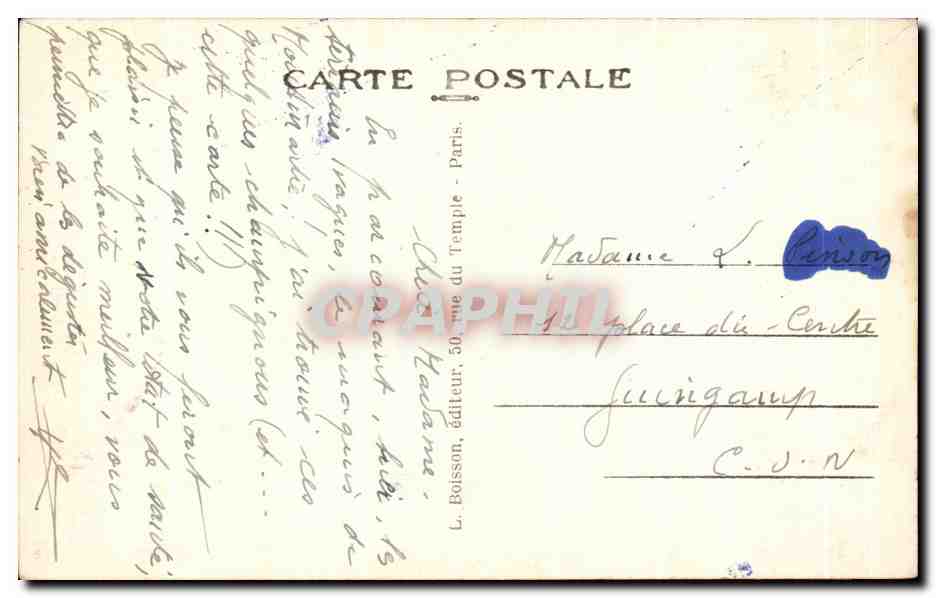 CARTE POSTALE
Chère Madame.
En parcourant, hier, les
terrains vagues, le maquis de
Montmartre, j'ai trouvé ces
quelques champignons (et...
cette carte!!!)
Je pense qu'ils vous feront
plaisir et que votre état de santé,
que je souhaite meilleur, vous
permettra de les déguster
bien amicalement
L. Boisson, éditeur, 50, rue du Temple - Paris.
CPAPHIL
Madame L. Pinson
12 place du Centre
Guingamp
C.D.N